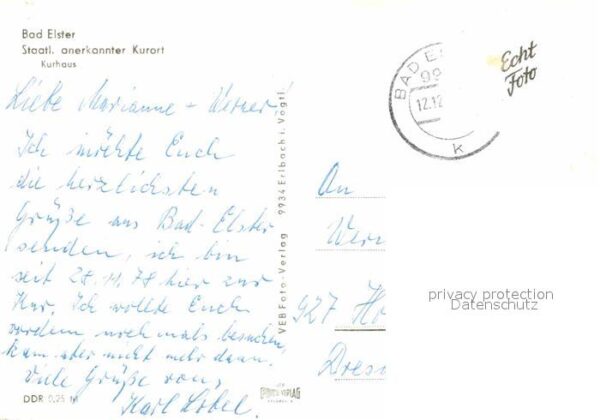 Bad Elster
Staatl. anerkannter Kurort
Kurhaus
Liebe Marianne + Werner!
Ich möchte Euch
die herzlichsten
Grüße aus Bad-Elster
senden, ich bin
seit 28.11.78 hier zur
Kur. Ich wollte Euch
vordem nochmals besuchen,
kam aber nicht mehr dazu.
Viele Grüße von,
Karl
DDR 0,25 M
VEB Foto-Verlag 9934 Erlbach i. Vogtl.
BAD E
99
12.12
k
Echt
Foto
An
Wern
927 Ho
Dres
privacy protection
Datenschutz